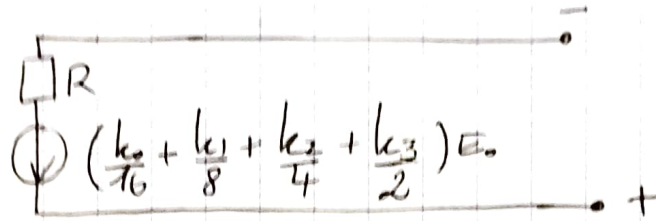 −
R
(k₀/16 + k₁/8 + k₂/4 + k₃/2) E₀
+